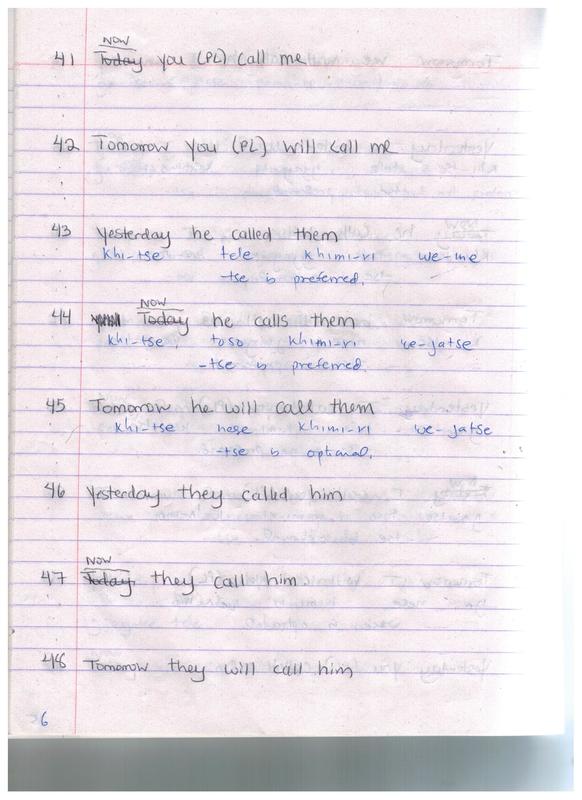 NOW
41 Today you (PL) call me
42 Tomorrow you (PL) will call me
43 Yesterday he called them
khi-tse tele khimi-ri we-me
-tse is preferred.
NOW
44 Today he calls them
khi-tse toso khimi-ri we-jatse
-tse is preferred.
45 Tomorrow he will call them
khi-tse nese khimi-ri we-jatse
-tse is optional.
46 Yesterday they called him
NOW
47 Today they call him
48 Tomorrow they will call him
6